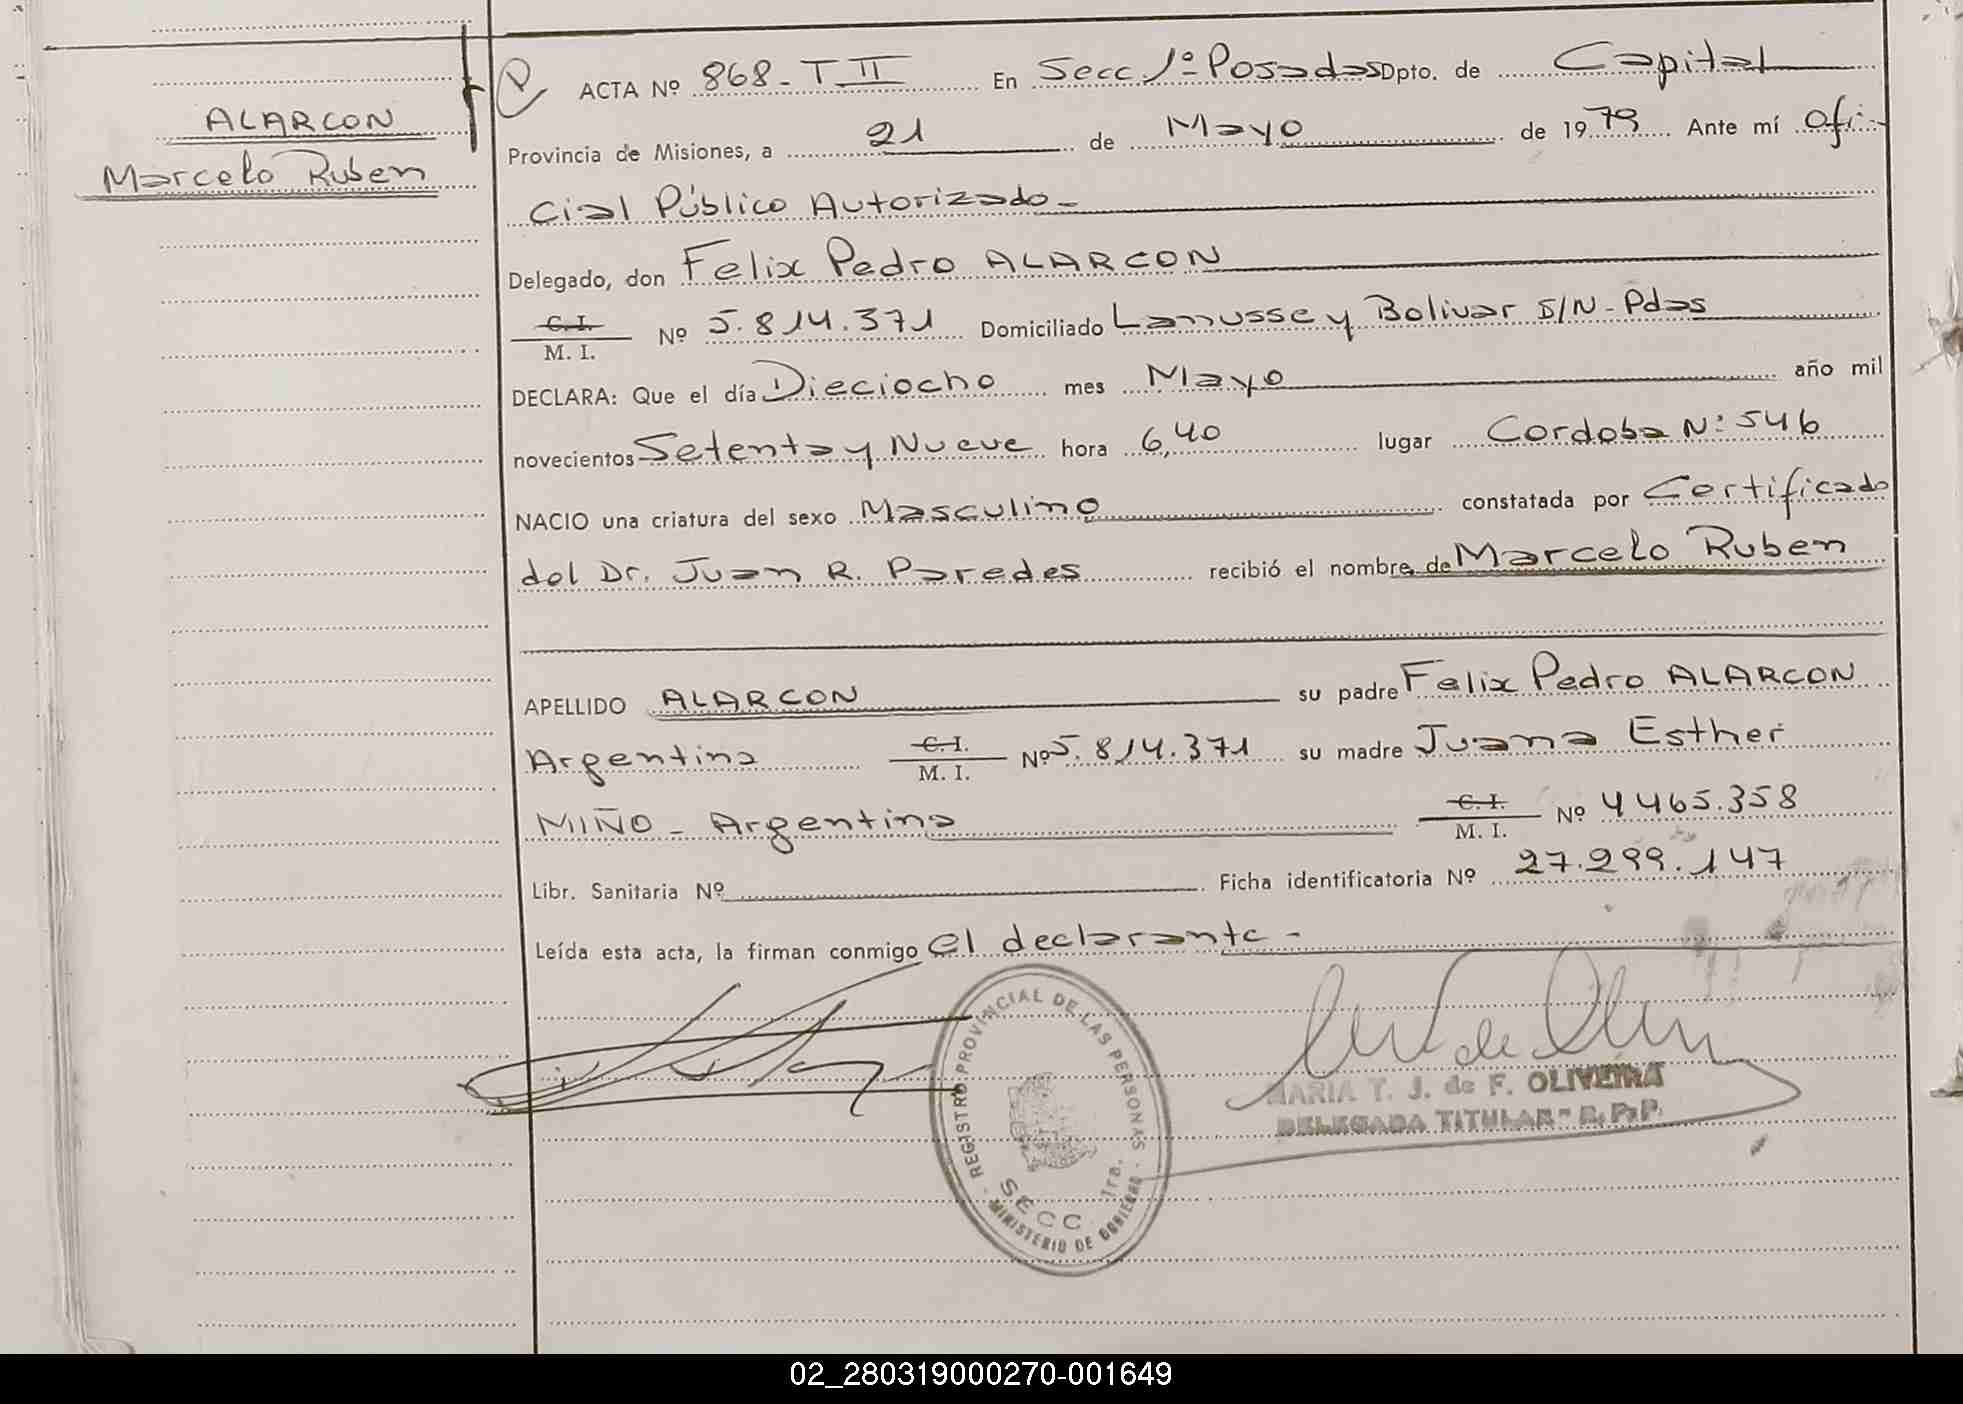 ALARCON
Marcelo Ruben
ACTA Nº 868-T II En Secc. 1º Posadas Dpto. de Capital
Provincia de Misiones, a 21 de Mayo de 1979 Ante mí Ofi-
cial Público Autorizado-
Delegado, don Felix Pedro ALARCON
C.I. M. I. Nº 5.814.371 Domiciliado Lanusse y Bolivar S/N-Pdas
DECLARA: Que el día Dieciocho mes Mayo año mil
novecientos Setenta y Nueve hora 6,40 lugar Cordoba N: 546
NACIO una criatura del sexo Masculino constatada por Certificado
del Dr. Juan R. Paredes recibió el nombre de Marcelo Ruben
APELLIDO ALARCON su padre Felix Pedro ALARCON
Argentino C.I. M. I. Nº 5.814.371 su madre Juana Esther
MIÑO - Argentina C.I. M. I. Nº 4465.358
Libr. Sanitaria Nº Ficha identificatoria Nº 27.299.147
Leída esta acta, la firman conmigo el declarante-
REGISTRO PROVINCIAL DE LAS PERSONAS - MINISTERIO DE GOBIERNO -
SECC. 1ra.
MARIA T. J. de F. OLIVEIRA
DELEGADA TITULAR - R. P. P.
02_280319000270-001649